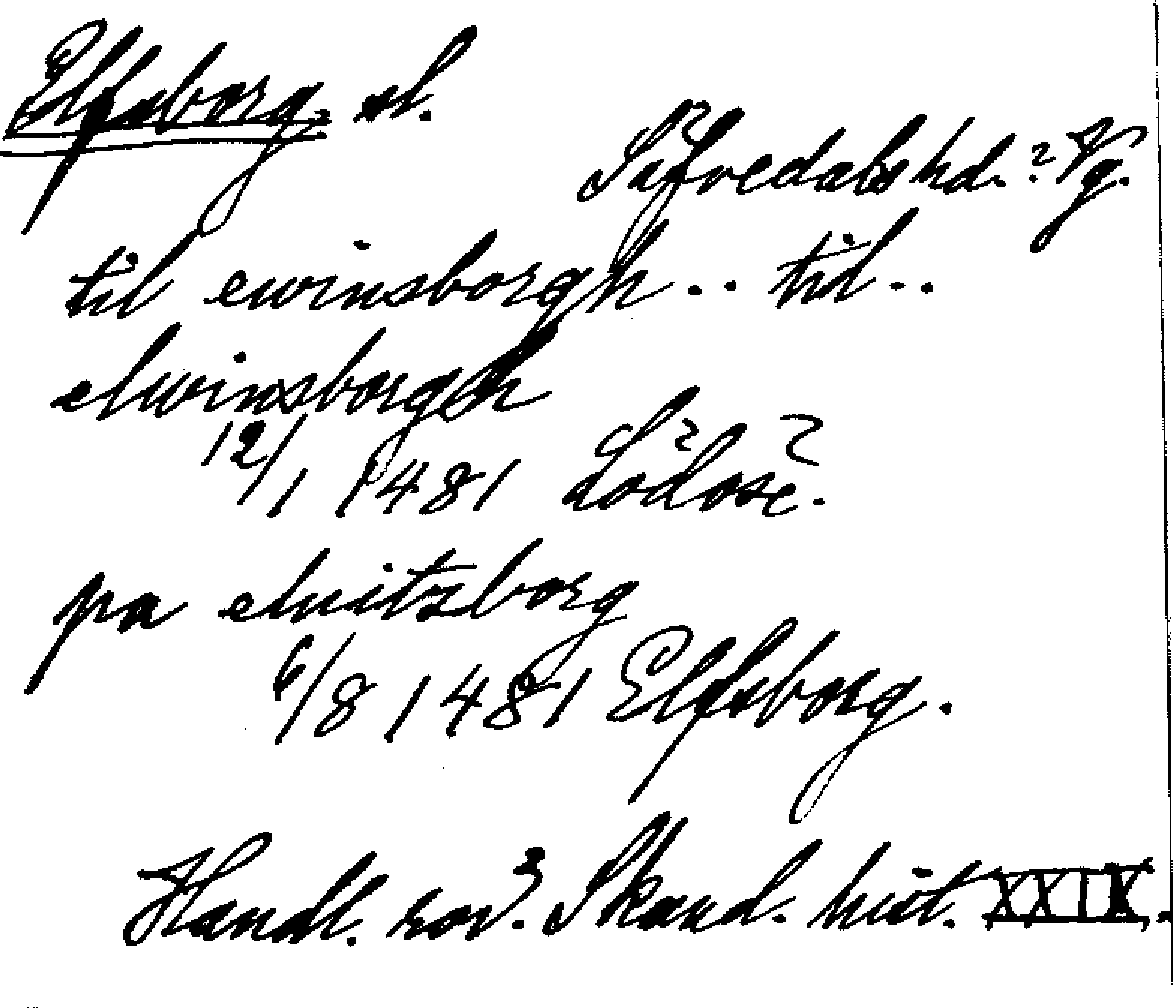 Elfsborg, sl.
Säfvedals hd.? Vg.
til ewinsborgh .. til ..
elwinsborgh
12/1 1481 Lödöse.
pa eluitzborg
6/8 1481 Elfsborg.
Handl. rör. Skand. hist. XXIX.